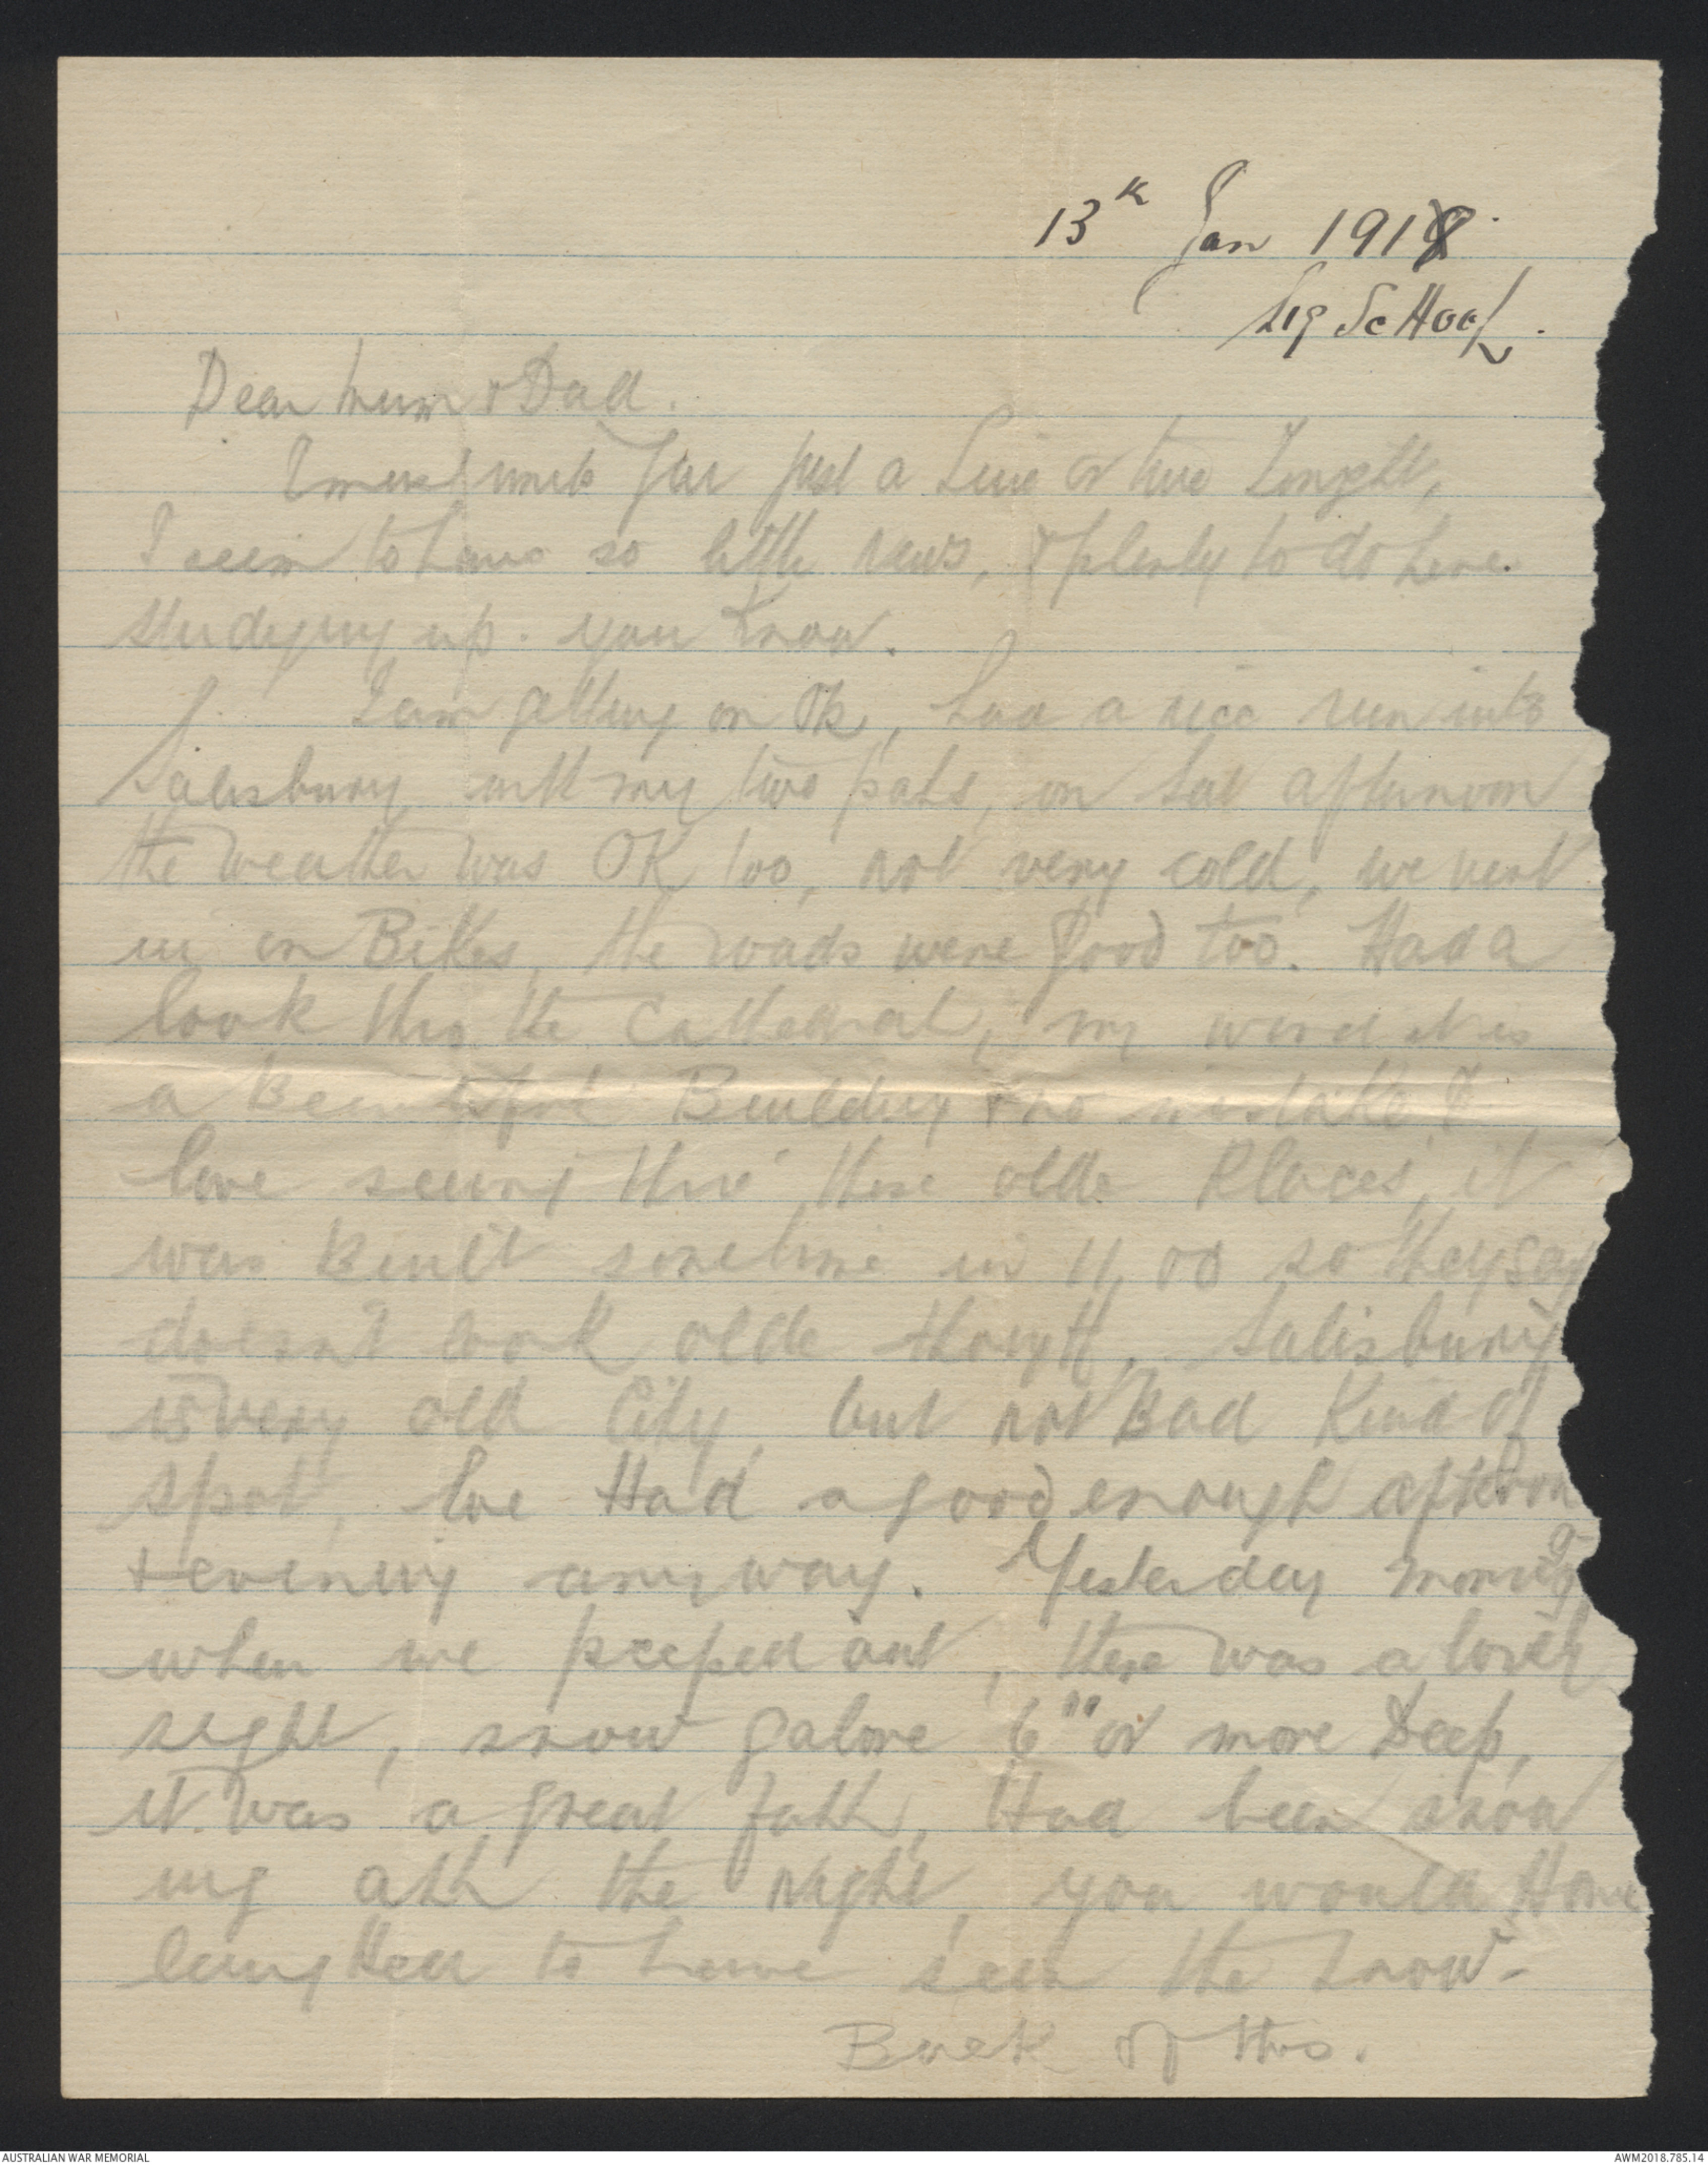 13th Jan 1918.
Sig ScHool.
Dear Mum & Dad.
I must write you just a Line or two Tonight,
I seem to have so little news, & plenty to do here
studying up. you know.
I am getting on Ok, had a nice run into
Salisbury with my two pals, on Sat afternoon
the weather was OK too, not very cold, we went
in on Bikes, the roads were Good too. Had a
look thro the Cathedral, my word it is
a Beautiful Building & no mistake, I
love seeing thro' these olde Places, it
was Built sometime in 11,00 so they say
doesn't look olde though, Salisbury
is very old City, but not Bad Kind of
spot, we Had a good enough afternoon
& evening anyway. Yesterday morning
when we peeped out, there was a lovely
sight, snow galore 6" or more Deep,
it was a great fall, Had been snow
ing all the night, you would Have
laughed to have seen the snow-
Back of this.
AUSTRALIAN WAR MEMORIAL
AWM2018.785.14